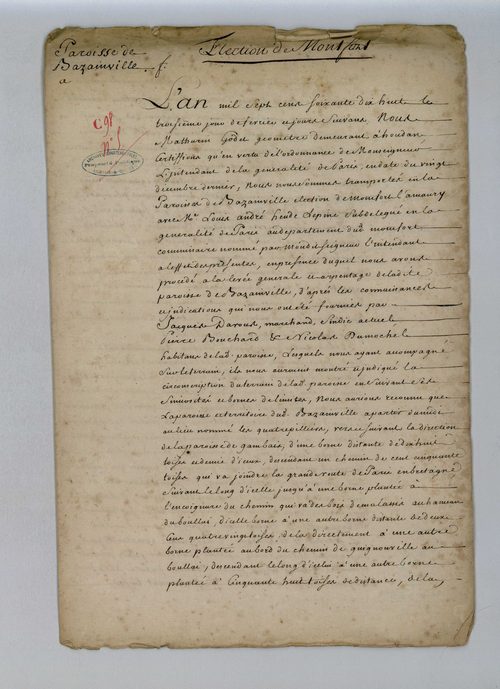 Paroisse de
Bazainville
Election de Montfort
C 98
n° 5
L'an mil sept cens soixante dix huit le
troisieme jour de fevrier et jours suivans, Nous
Mathurin Godet geometre demeurant a houdan
Certiffions qu'en vertu de l'ordonnance de Monseigneur
L'intendant de la generalité de Paris, en date du vingt
decembre dernier, Nous nous sommes transportés en la
Paroisse de Bazainville election de montfort l'amaury
avec Mr. Louis andré heude Lepine Subdelegué en la
generalité de Paris au departement dud montfort
commissaire nommé par mondit seigneur l'intendant
a l'effet des présentes, en presence duquel nous avons
procédé a la levée generale et arpentage de ladite
paroisse de Bazainville, d'après les connaissances
et indications qui nous ont été fournies par
Jacques Davous, marchand, sindic actuel
Pierre Bouchard & Nicolas Dumochel
habitans de lad. paroisse, Lesquels nous ayant accompagné
sur le terrain, ils nous auroient montré et indiqué la
circonscription du terrain de lad. paroisse en suivant ses
sinuosités et bornes de limites, Nous aurions reconnu que
La paroisse et territoire dud. Bazainville a partir du midi
au lieu nommé les quatre pilliers, vers et suivant la direction
de la paroisse de gambais, d'une borne distante de dix huit
toises et demie d'iceux, descendant un chemin de cent cinquante
toises qui va joindre la grande route de Paris en bretagne
suivant le long d'icelle jusqu'a une borne plantée a
l'encoignure du chemin qui va des bois de malassis au hameau
du boullai, d'icelle borne a une autre borne distante de deux
cens quatre vingt toises, de la directement a une autre
borne plantée au bord du chemin de guignonville au
boullai, descendant le long d'icelui a une autre borne
plantée a Cinquante huit toises de distance, de la,